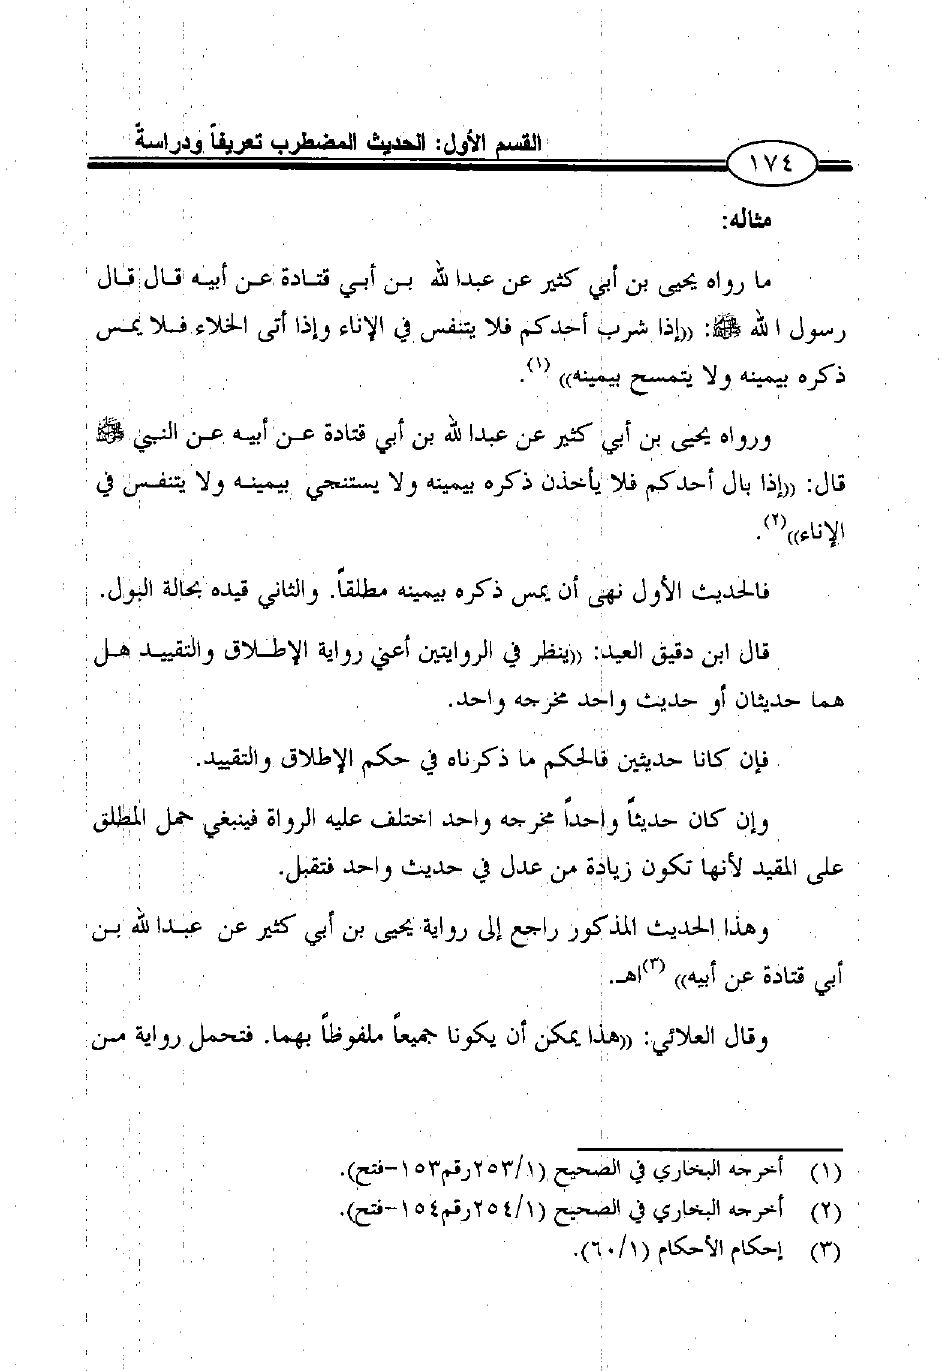 القسم الأول: الحديث المضطرب تعريفاً ودراسةً
١٧٤
مثاله:
ما رواه يحيى بن أبي كثير عن عبدا لله بن أبي قتادة عن أبيه قال قال
رسول ا لله ﷺ: ((إذا شرب أحدكم فلا يتنفس في الإناء وإذا أتى الخلاء فلا يمس
ذكره بيمينه ولا يتمسح بيمينه)) (١).
ورواه يحيى بن أبي كثير عن عبدا لله بن أبي قتادة عن أبيه عن النبي ﷺ
قال: ((إذا بال أحدكم فلا يأخذن ذكره بيمينه ولا يستنجي بيمينه ولا يتنفس في
الإناء))(٢).
فالحديث الأول نهى أن يمس ذكره بيمينه مطلقاً. والثاني قيده بحالة البول.
قال ابن دقيق العيد: ((ينظر في الروايتين أعني رواية الإطلاق والتقييد هل
هما حديثان أو حديث واحد مخرجه واحد.
فإن كانا حديثين فالحكم ما ذكرناه في حكم الإطلاق والتقييد.
وإن كان حديثاً واحداً مخرجه واحد اختلف عليه الرواة فينبغي حمل المطلق
على المقيد لأنها تكون زيادة من عدل في حديث واحد فتقبل.
وهذا الحديث المذكور راجع إلى رواية يحيى بن أبي كثير عن عبدا لله بن
أبي قتادة عن أبيه)) (٣)اهـ.
وقال العلائي: ((هذا يمكن أن يكونا جميعاً ملفوظاً بهما. فتحمل رواية من
(١) أخرجه البخاري في الصحيح (٢٥٣/١رقم١٥٣-فتح).
(٢) أخرجه البخاري في الصحيح (٢٥٤/١رقم١٥٤-فتح).
(٣) إحكام الأحكام (٦٠/١).